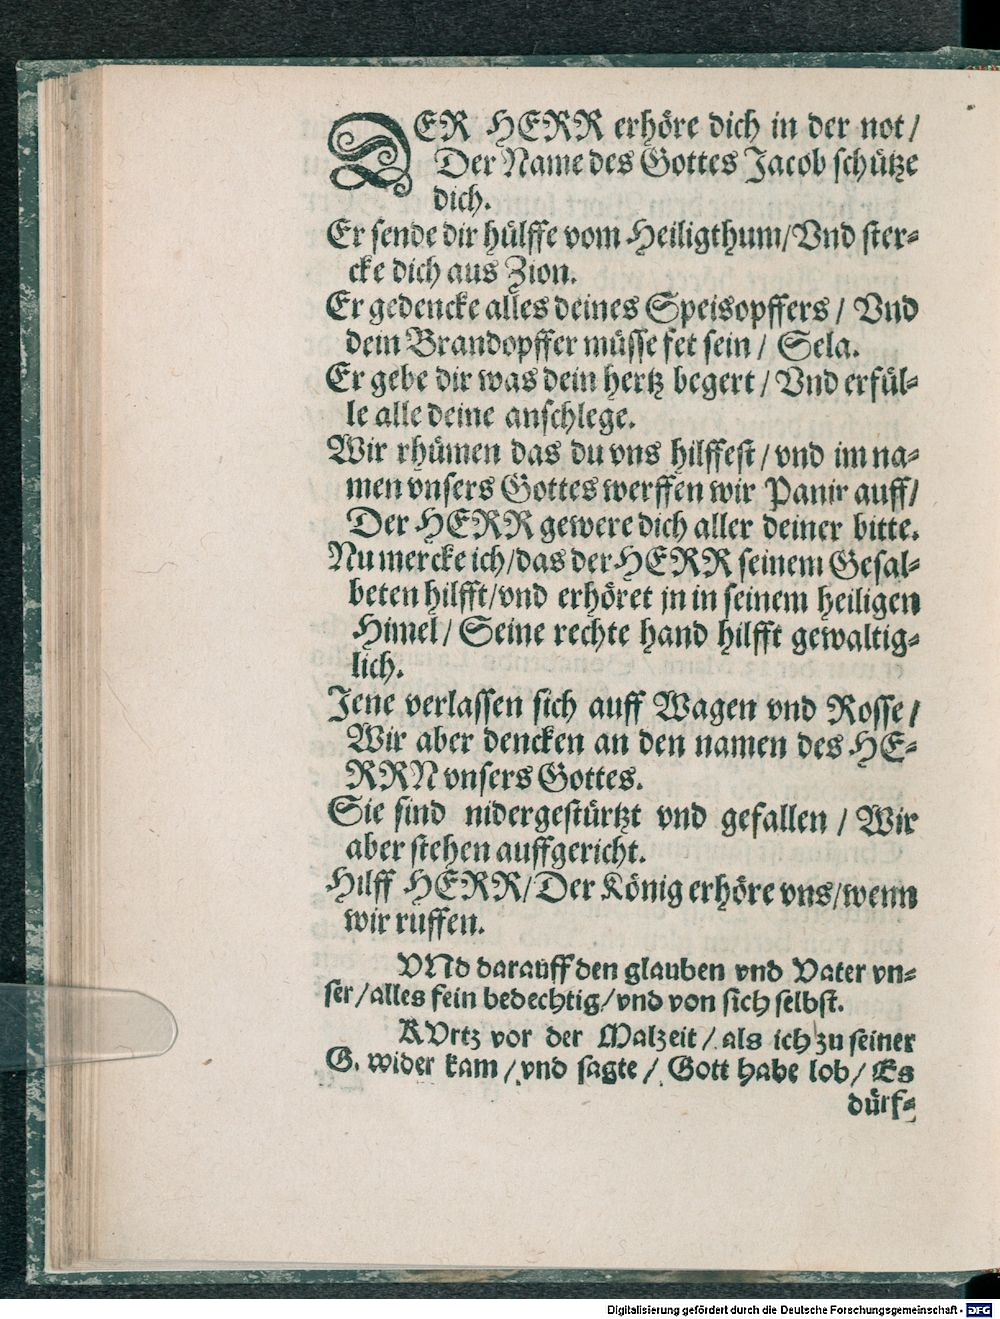 DER HERR erhöre dich in der not/
Der Name des Gottes Jacob schütze
dich.
Er sende dir hülffe vom Heiligthum/Vnd ster-
cke dich aus Zion.
Er gedencke alles deines Speisopffers / Vnd
dein Brandopffer müsse fet sein / Sela.
Er gebe dir was dein hertz begert / Vnd erfül-
le alle deine anschlege.
Wir rhümen das du vns hilffest / vnd im na-
men vnsers Gottes werffen wir Panir auff/
Der HERR gewere dich aller deiner bitte.
Nu mercke ich/das der HERR seinem Gesal-
beten hilfft/vnd erhöret jn in seinem heiligen
Himel/ Seine rechte hand hilfft gewaltig-
lich.
Jene verlassen sich auff Wagen vnd Rosse/
Wir aber dencken an den namen des HE-
RRN vnsers Gottes.
Sie sind nidergestürtzt vnd gefallen / Wir
aber stehen auffgericht.
Hilff HERR/Der König erhöre vns/wenn
wir ruffen.
VNd darauff den glauben vnd Vater vn-
ser/alles fein bedechtig/vnd von sich selbst.
KVrtz vor der Malzeit / als ich zu seiner
G. wider kam /vnd sagte / Gott habe lob/ Es
dürf-
Digitalisierung gefördert durch die Deutsche Forschungsgemeinschaft - DFG